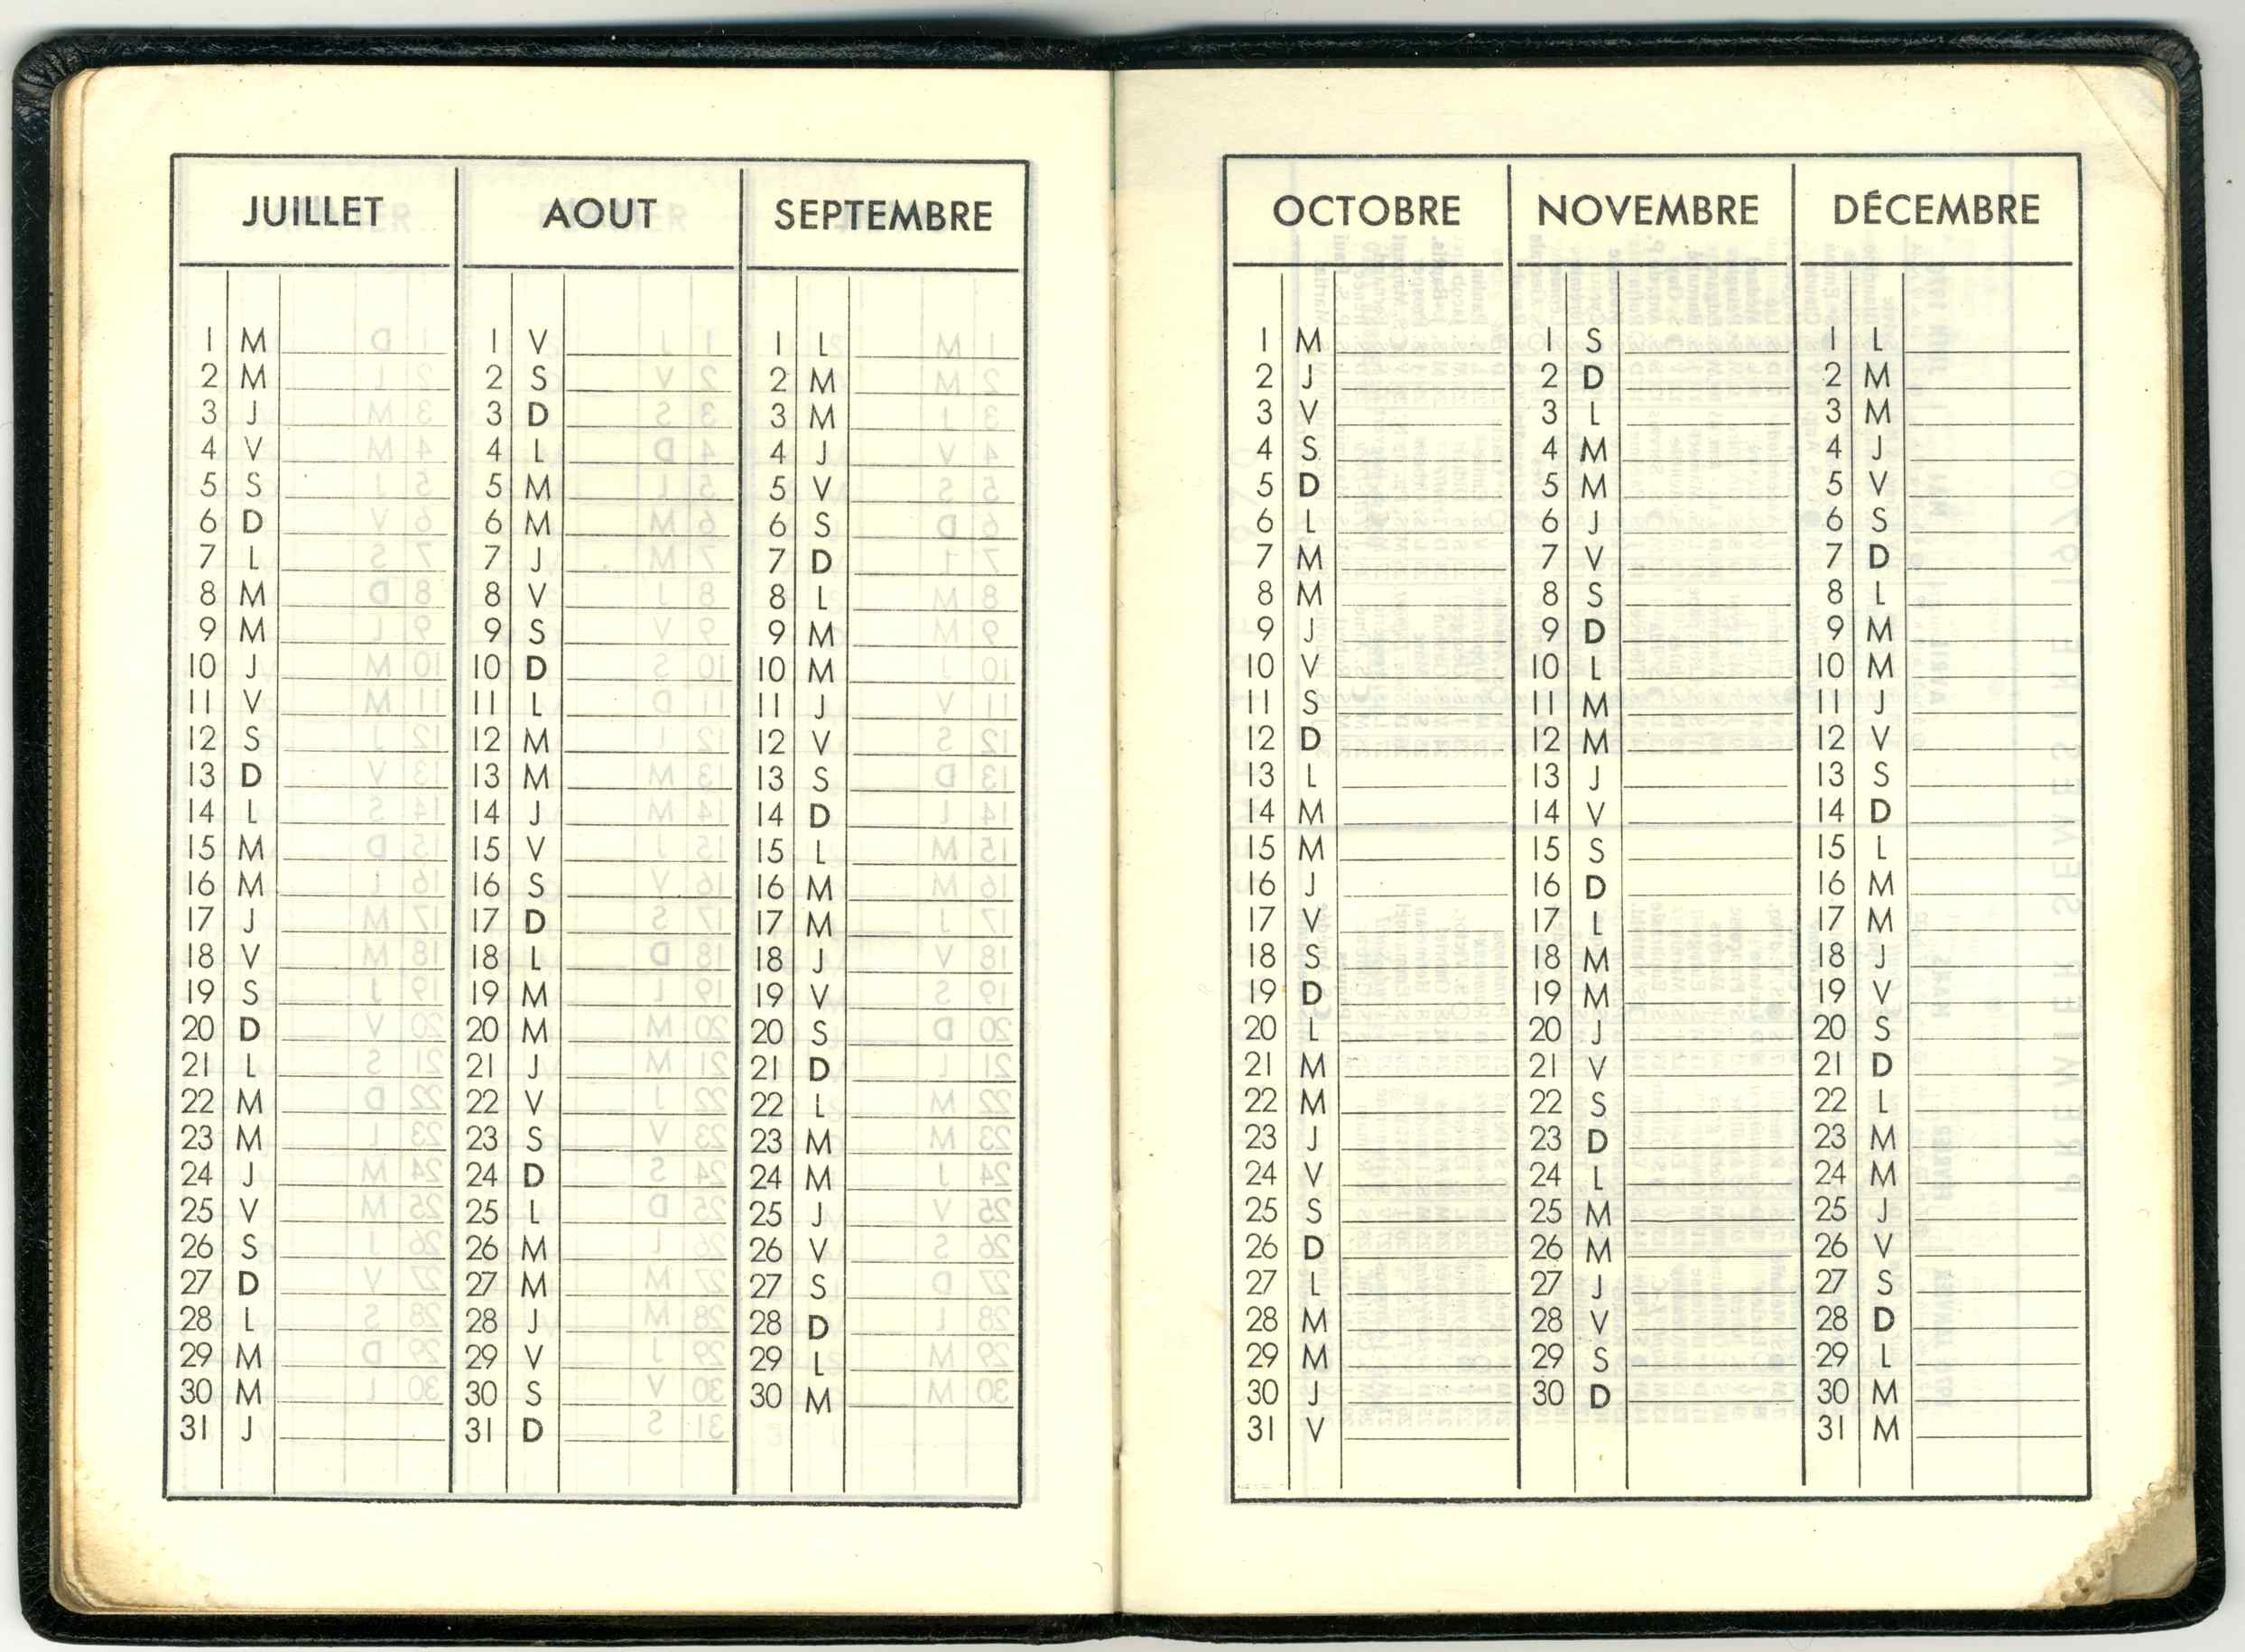 JUILLET AOUT SEPTEMBRE
1 M 1 V 1 L
2 M 2 S 2 M
3 J 3 D 3 M
4 V 4 L 4 J
5 S 5 M 5 V
6 D 6 M 6 S
7 L 7 J 7 D
8 M 8 V 8 L
9 M 9 S 9 M
10 J 10 D 10 M
11 V 11 L 11 J
12 S 12 M 12 V
13 D 13 M 13 S
14 L 14 J 14 D
15 M 15 V 15 L
16 M 16 S 16 M
17 J 17 D 17 M
18 V 18 L 18 J
19 S 19 M 19 V
20 D 20 M 20 S
21 L 21 J 21 D
22 M 22 V 22 L
23 M 23 S 23 M
24 J 24 D 24 M
25 V 25 L 25 J
26 S 26 M 26 V
27 D 27 M 27 S
28 L 28 J 28 D
29 M 29 V 29 L
30 M 30 S 30 M
31 J 31 D
OCTOBRE NOVEMBRE DÉCEMBRE
1 M 1 S 1 L
2 J 2 D 2 M
3 V 3 L 3 M
4 S 4 M 4 J
5 D 5 M 5 V
6 L 6 J 6 S
7 M 7 V 7 D
8 M 8 S 8 L
9 J 9 D 9 M
10 V 10 L 10 M
11 S 11 M 11 J
12 D 12 M 12 V
13 L 13 J 13 S
14 M 14 V 14 D
15 M 15 S 15 L
16 J 16 D 16 M
17 V 17 L 17 M
18 S 18 M 18 J
19 D 19 M 19 V
20 L 20 J 20 S
21 M 21 V 21 D
22 M 22 S 22 L
23 J 23 D 23 M
24 V 24 L 24 M
25 S 25 M 25 J
26 D 26 M 26 V
27 L 27 J 27 S
28 M 28 V 28 D
29 M 29 S 29 L
30 J 30 D 30 M
31 V 31 M